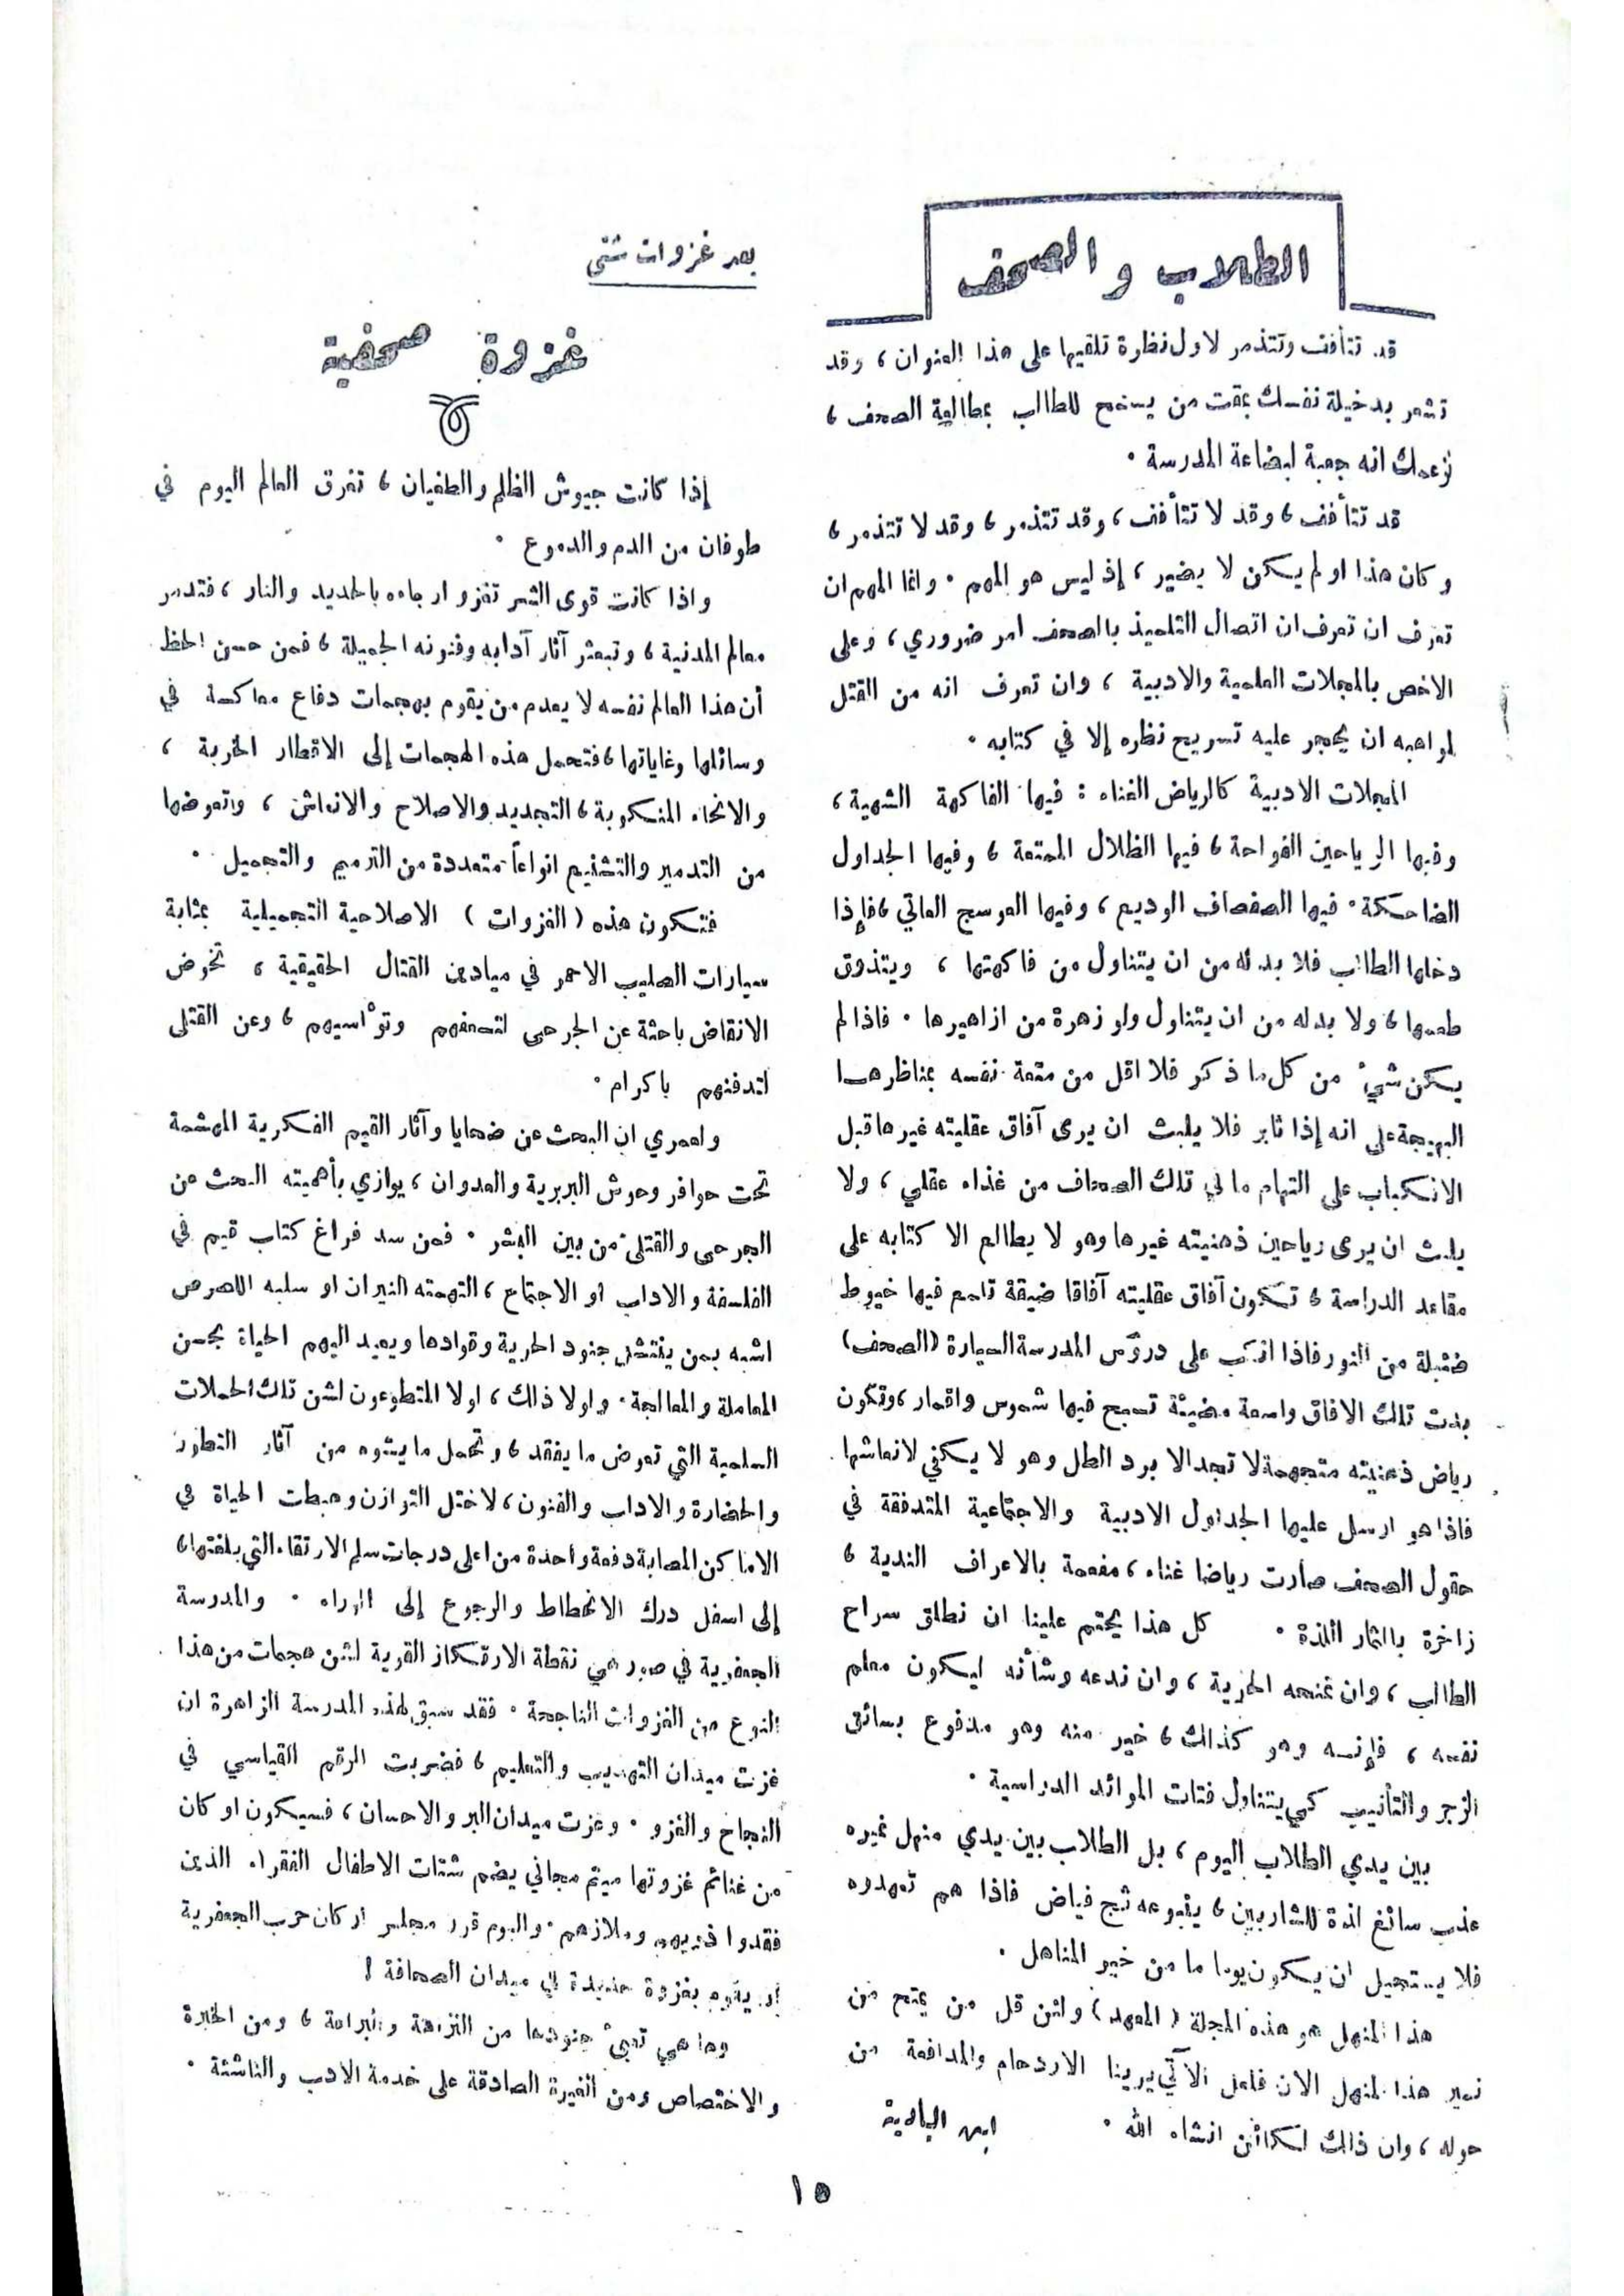 الطلاب و الصحف
قد تتأفف وتتذمر لاول نظرة تلقيها على هذا العنوان ، وقد
تشعر بدخيلة نفسك بمقت من يسمح للطالب بمطالعة الصحف ،
لزعمك انه جعبة لبضاعة المدرسة .
قد تتأفف ، وقد لا تتأفف ، وقد تتذمر ، وقد لا تتذمر ،
وكان هذا او لم يكن لا يضير ، إذ ليس هو المهم . وانما المهم ان
تعرف ان تعرف ان اتصال التلميذ بالصحف امر ضروري ، وعلى
الاخص بالمجلات العلمية والادبية ، وان تعرف انه من القتل
لمواهبه ان يحجر عليه تسريح نظره إلا في كتابه .
المجلات الادبية كالرياض الغناء : فيها الفاكهة الشهية ،
وفيها الرياحين الفواحة ، فيها الظلال الممتعة ، وفيها الجداول
الضاحكة . فيها الصفصاف الوديع ، وفيها العوسج العاتي ، فإذا
دخلها الطالب فلا بد له من ان يتناول من فاكهتها ، ويتذوق
طعمها ، ولا بد له من ان يتناول ولو زهرة من ازاهيرها . فاذا لم
يكن شيء من كل ما ذكر فلا اقل من متعة نفسه بمناظرها
البهيجة على انه إذا ثابر فلا يلبث ان يرى آفاق عقليته غيرها قبل
الانكباب على التهام ما في تلك الصحاف من غذاء عقلي ، ولا
يلبث ان يرى رياحين ذهنيته غيرها وهو لا يطالع الا كتابه على
مقاعد الدراسة ، تكون آفاق عقليته آفاقا ضيقة تلمع فيها خيوط
ضئيلة من النور فاذا انكب على دروس المدرسة السيارة (الصحف)
بدت تلك الافاق واسعة مضيئة تسبح فيها شموس واقمار ، وتكون
رياض ذهنيته متجهمة لا تجد الا برد الطل وهو لا يكفي لانعاشها .
فاذا هو ارسل عليها الجداول الادبية والاجتماعية المتدفقة في
حقول الصحف صارت رياضا غناء ، مفعمة بالاعراف الندية ،
زاخرة بالثمار اللذة . كل هذا يحتم علينا ان نطلق سراح
الطالب ، وان نمنحه الحرية ، وان ندعه وشأنه ليكون معلم
نفسه ، فإنه وهو كذلك ، خير منه وهو مدفوع بسائق
الزجر والتأنيب كي يتناول فتات الموائد الدراسية .
بين يدي الطلاب اليوم ، بل الطلاب بين يدي منهل نميره
عذب سائغ لذة للشاربين ، ينبوعه ثج فياض فاذا هم تعهدوه
فلا يستحيل ان يكون يوما ما من خير المناهل .
هذا المنهل هو هذه المجلة ( المعهد ) ولئن قل من يمتح من
نمير هذا المنهل الان فلعل الآتي يرينا الازدحام والمدافعة من
حوله ، وان ذلك لكائن انشاء الله .
ابن البادية
بعد غزوات شتى
غزوة صحفية
إذا كانت جيوش الظلم والطغيان ، تغرق العالم اليوم في
طوفان من الدم والدموع .
واذا كانت قوى الشر تغزو ارجاءه بالحديد والنار ، فتدمر
معالم المدنية ، وتبعثر آثار آدابه وفنونه الجميلة ، فمن حسن الحظ
أن هذا العالم نفسه لا يعدم من يقوم بهجمات دفاع معاكسة في
وسائلها وغاياتها ، فتحمل هذه الهجمات إلى الاقطار الخربة ،
والانحاء المنكوبة ، التجديد والاصلاح والانعاش ، وتعوضها
من التدمير والتشنيع انواعاً متعددة من الترميم والتجميل .
فتكون هذه ( الغزوات ) الاصلاحية التجميلية بمثابة
سيارات الصليب الاحمر في ميادين القتال الحقيقية ، تخوض
الانقاض باحثة عن الجرحى لتسعفهم وتؤاسيهم ، وعن القتلى
لتدفنهم باكرام .
ولعمري ان البحث عن ضحايا وآثار القيم الفكرية المهشمة
تحت حوافر وحوش البربرية والعدوان ، يوازي بأهميته البحث عن
الجرحى والقتلى من بين البشر . فمن سد فراغ كتاب قيم في
الفلسفة والاداب او الاجتماع ، التهمته النيران او سلبه اللصوص
اشبه بمن ينتشل جنود الحرية وقوادها ويعيد اليهم الحياة بحسن
المعاملة والمعالجة . ولولا ذلك ، لولا المتطوعون لشن تلك الحملات
السلمية التي تعوض ما يفقد ، وتجمل ما يشوه من آثار التطور
والحضارة والاداب والفنون ، لاختل التوازن وهبطت الحياة في
الاماكن المصابة دفعة واحدة من اعلى درجات سلم الارتقاء التي بلغتها ،
إلى اسفل درك الانحطاط والرجوع إلى الوراء . والمدرسة
الجعفرية في صور هي نقطة الارتكاز القوية لشن هجمات من هذا
النوع من الغزوات الناجحة . فقد سبق لهذه المدرسة الزاهرة ان
غزت ميدان التهذيب والتعليم ، فضربت الرقم القياسي في
النجاح والغزو . وغزت ميدان البر والاحسان ، فسيكون او كان
من غنائم غزوتها ميتم مجاني يضم شتات الاطفال الفقراء الذين
فقدوا ذويهم وملاذهم . واليوم قرر مجلس اركان حرب الجعفرية
ان يقوم بغزوة جديدة في ميدان الصحافة !
وها هي تعبئ جنودها من النزاهة والبراعة ، ومن الخبرة
والاختصاص ومن الغيرة الصادقة على خدمة الادب والناشئة .
١٥